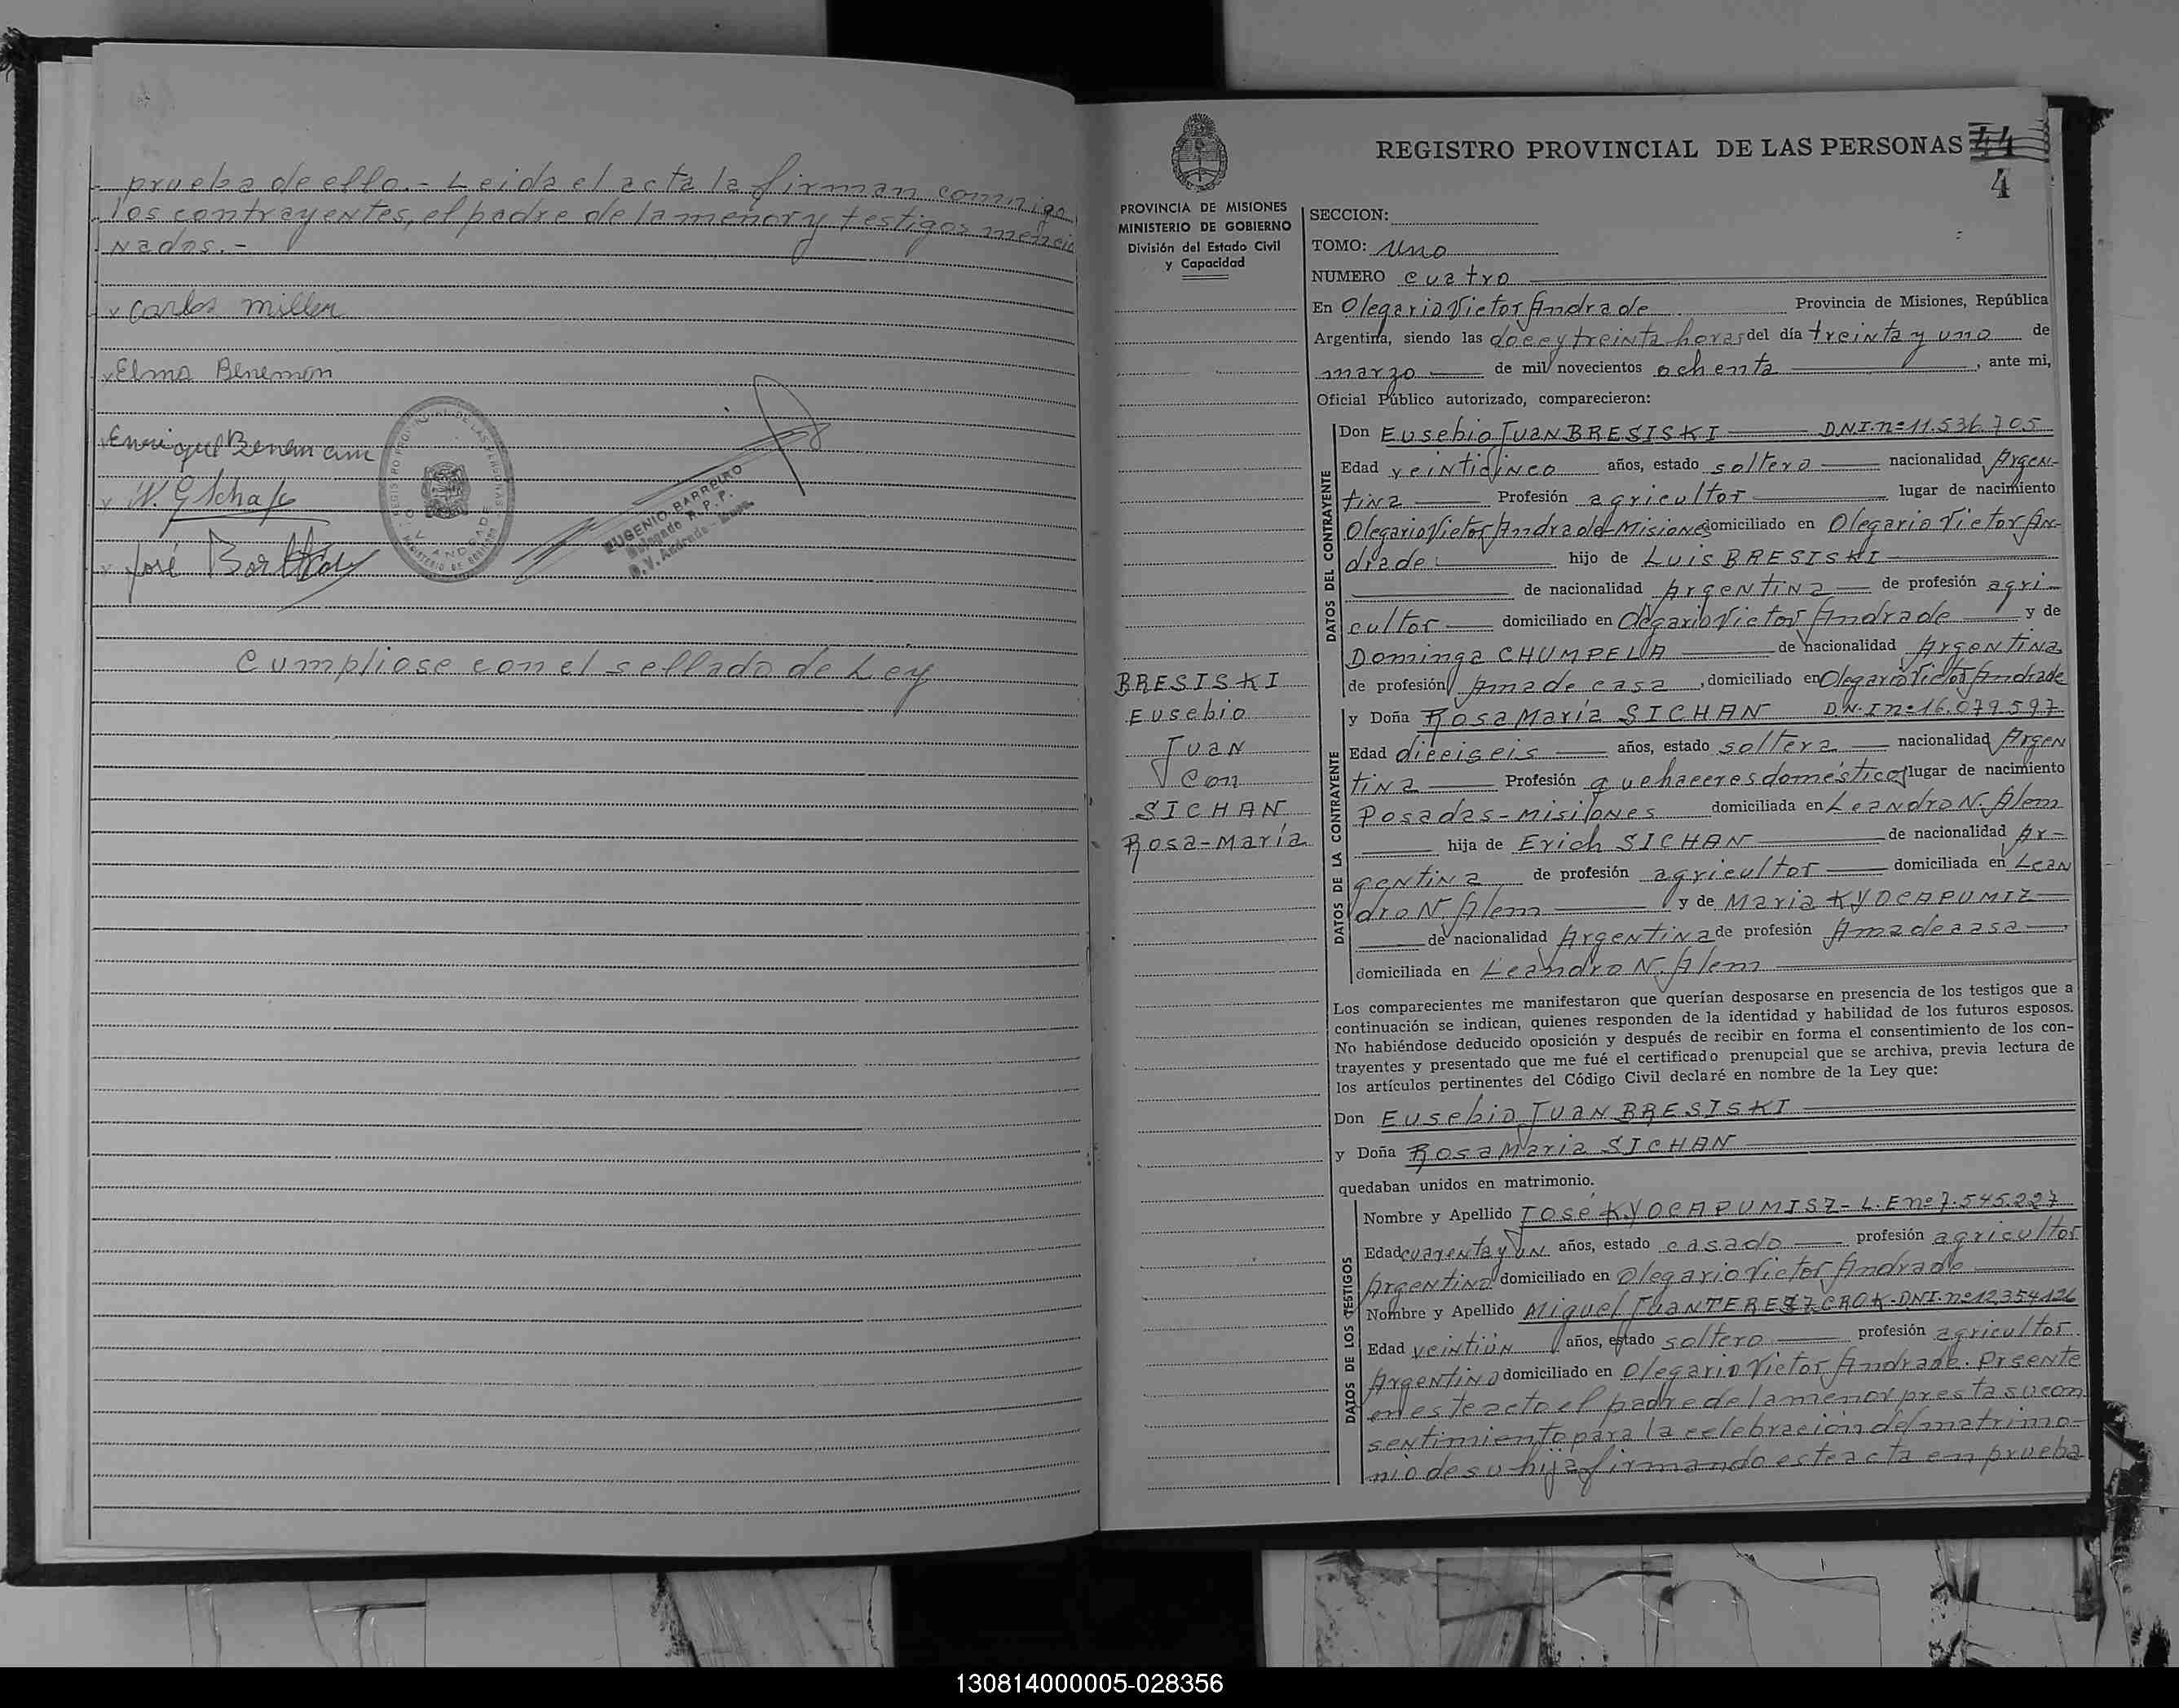 prueba de ello.- Leida el acta la firman conmigo
los contrayentes, el padre de la menor y testigos mencio
nados.-
x Carlos Miller
x Elma Benemon
x Enrique Benemann
x W. G Schafe
x José
REGISTRO PROVINCIAL DE LAS PERSONAS
O. V. ANDRADE
MINISTERIO DE GOBIERNO
EUGENIO BARREIRO
Delegado R. P. P.
O.V. Andrade - Mnes.
Cumpliose con el sellado de Ley
REGISTRO PROVINCIAL DE LAS PERSONAS 44
4
PROVINCIA DE MISIONES
MINISTERIO DE GOBIERNO
División del Estado Civil
y Capacidad
BRESISKI
Eusebio
Juan
Con
SICHAN
Rosa-María
SECCION:
TOMO: Uno
NUMERO cuatro
En Olegario Victor Andrade Provincia de Misiones, República
Argentina, siendo las doce y treinta horas del día treinta y uno de
marzo de mil novecientos ochenta, ante mi,
Oficial Público autorizado, comparecieron:
DATOS DEL CONTRAYENTE
Don Eusebio Juan BRESISKI D.N.I. nº 11.536.705
Edad veinticinco años, estado soltero nacionalidad Argen-
tina Profesión agricultor lugar de nacimiento
Olegario Victor Andrade-Misiones domiciliado en Olegario Victor An-
drade hijo de Luis BRESISKI
de nacionalidad Argentina de profesión agri-
cultor domiciliado en Olegario Victor Andrade y de
Dominga CHUMPELA de nacionalidad Argentina
de profesión Ama de casa, domiciliado en Olegario Victor Andrade
DATOS DE LA CONTRAYENTE
y Doña Rosa María SICHAN D.N.I nº 16.079.597
Edad dieciseis años, estado soltera nacionalidad Argen
tina Profesión quehaceres domésticos lugar de nacimiento
Posadas-Misiones domiciliada en Leandro N. Alem
hija de Erich SICHAN de nacionalidad Ar-
gentina de profesión agricultor domiciliada en Lean
dro N. Alem y de Maria KYOCAPUMIZ
de nacionalidad Argentina de profesión Ama de casa,
domiciliada en Leandro N. Alem
Los comparecientes me manifestaron que querían desposarse en presencia de los testigos que a
continuación se indican, quienes responden de la identidad y habilidad de los futuros esposos.
No habiéndose deducido oposición y después de recibir en forma el consentimiento de los con-
trayentes y presentado que me fué el certificado prenupcial que se archiva, previa lectura de
los artículos pertinentes del Código Civil declaré en nombre de la Ley que:
Don Eusebio Juan BRESISKI
y Doña Rosa Maria SICHAN
quedaban unidos en matrimonio.
DATOS DE LOS TESTIGOS
Nombre y Apellido José KYOCAPUMISZ - L.E nº 7.545.227
Edad cuarenta y un años, estado casado profesión agricultor
Argentino domiciliado en Olegario Victor Andrade
Nombre y Apellido Miguel Juan TERESZCROK-DNI. nº 12.354.126
Edad veintiún años, estado soltero profesión agricultor.
Argentino domiciliado en Olegario Victor Andrade. Prsente
en este acto el padre de la menor presta su con
sentimiento para la celebración del matrimo-
nio de su hija firmando este acta en prueba
130814000005-028356